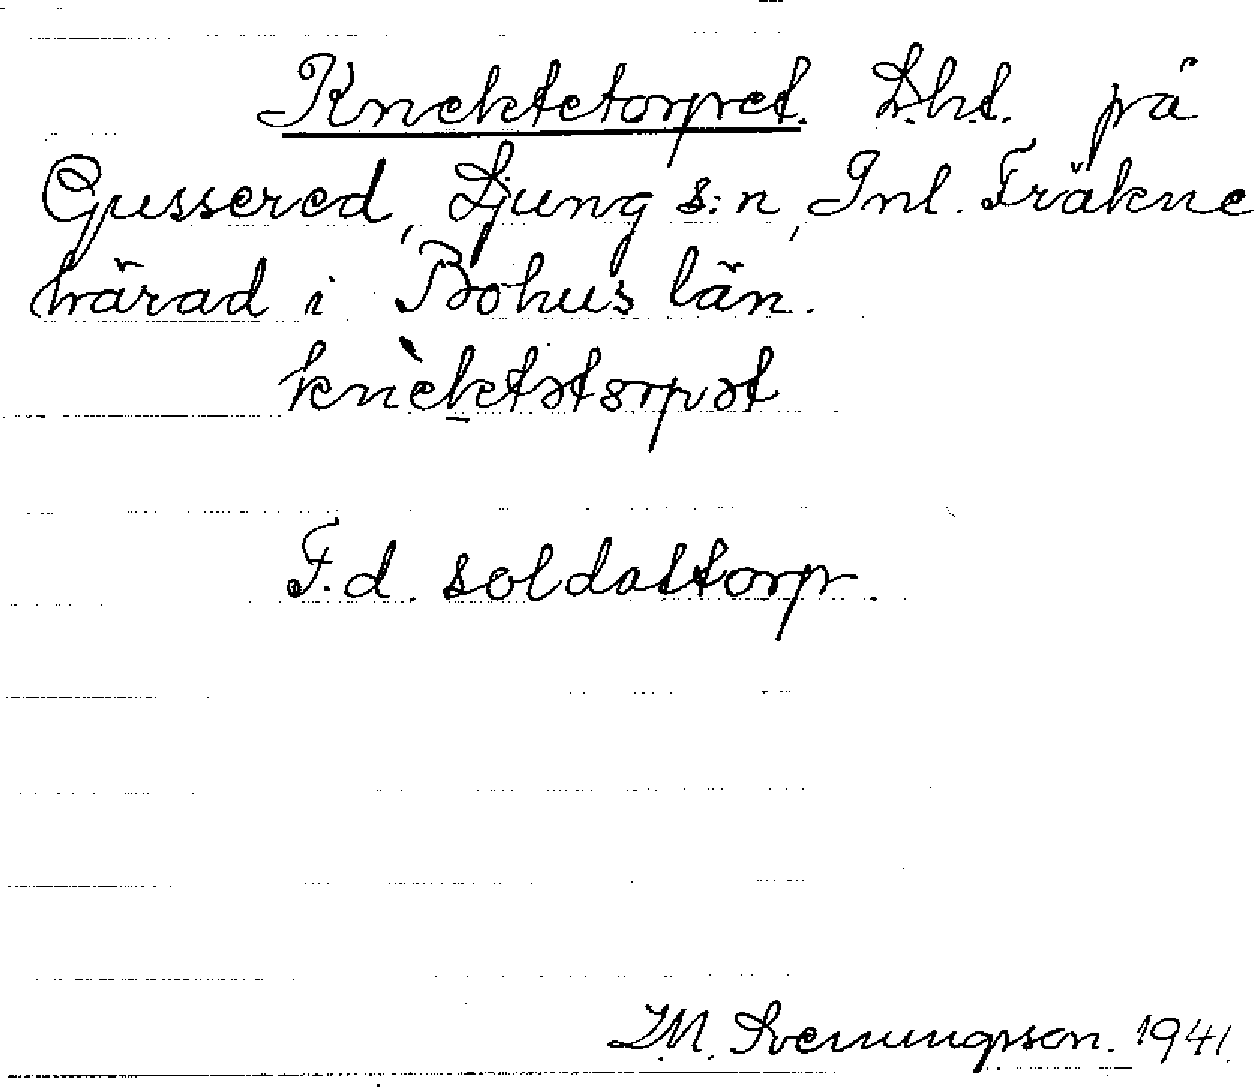 Knektetorpet. L.h.t. på
Gussered, Ljung s:n, Inl. Fräkne
härad i Bohus län.
knèktətorpət
F.d. soldattorp.
J.M. Svenungsson. 1941.